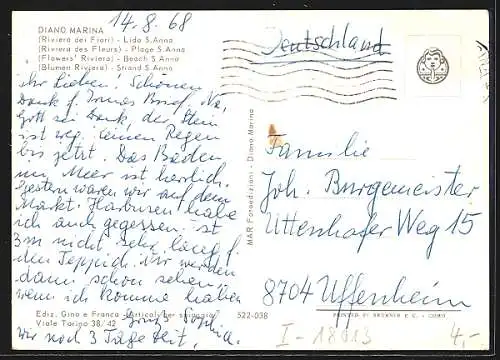 14.8.68
DIANO MARINA
(Riviera dei Fiori) - Lido S. Anna
(Riviera des Fleurs) - Plage S. Anna
(Flowers' Riviera) - Beach S. Anna
(Blumen Riviera) - Strand S. Anna
Ihr Lieben! Schönen
Dank f. Brief. Na,
Gott sei Dank, der Stein
ist weg. Keinen Regen
bis jetzt. Das Baden
im Meer ist herrlich.
Gestern waren wir auf dem
Markt. habe
ich auch gegessen. ist
3m nicht sehr lang f.
den Teppich. Ihr werden
dann schon sehen,
wenn ich komme. haben
Ediz. Gino e Franca "Articoli per spiaggia"
Viale Torino 38/42
522-038
Gruß Sophia.
wir noch 3 Tage Zeit,
MAR Fotoedizioni - Diano Marina
Deutschland
Familie
Joh. Burgemeister
Uttenhofer Weg 15
8704 Uffenheim
I-18013
4,-